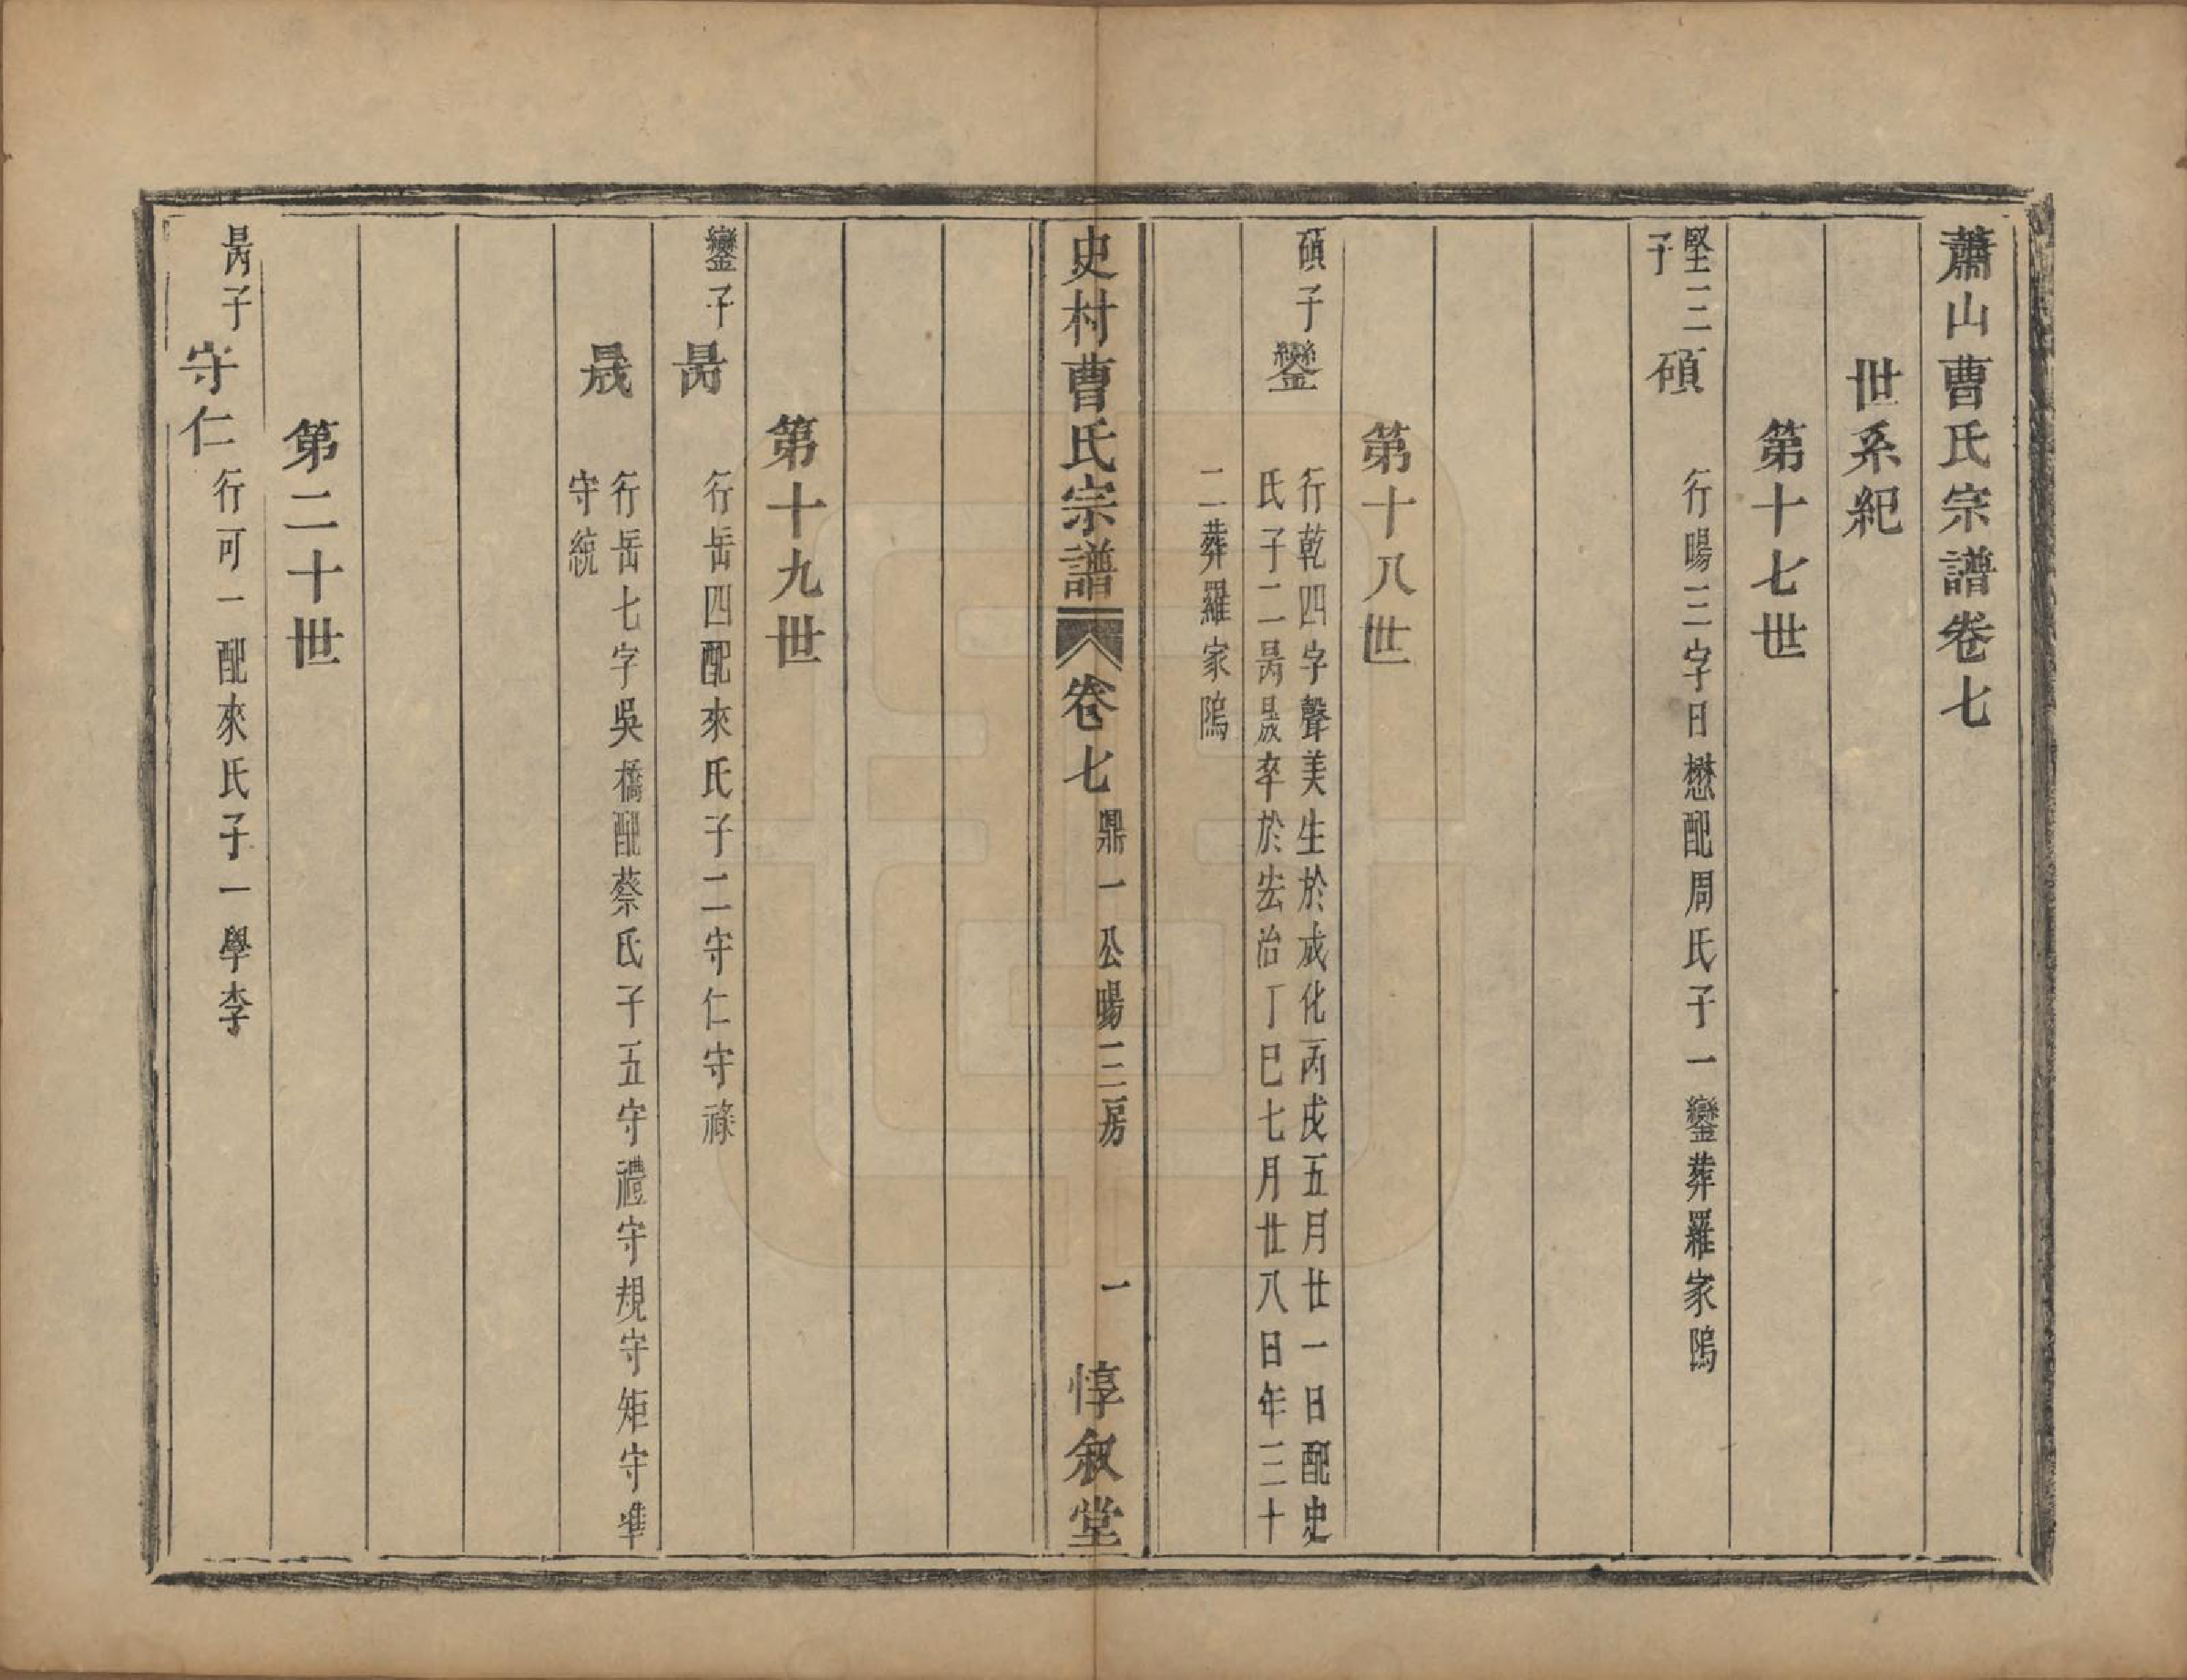 蕭山曹氏宗譜卷七
世系紀
第十七世
堅三子
碩
行暘三字日懋配周氏子一鑾葬羅家隖
第十八世
碩子
鑾
行乾四字聲美生於成化丙戌五月廿一日配史
氏子二昺晟卒於宏治丁巳七月廿八日年三十
二葬羅家隖
史村曹氏宗譜
卷七
鼎一公暘三房
一
惇叙堂
第十九世
鑾子
昺
行岳四配來氏子二守仁守祿
晟
行岳七字吳橋配蔡氏子五守禮守規守矩守準
守統
第二十世
昺子
守仁
行可一配來氏子一學李